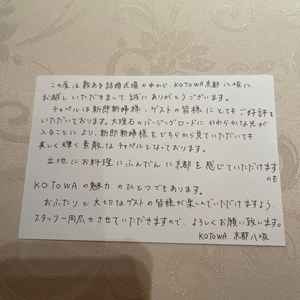 この度は数ある結婚式場の中から、KOTOWA京都八坂に
お越しいただきまして誠にありがとうございます。
チャペルは新郎新婦様、ゲストの皆様にとてもご好評を
いただいております。大理石のバージンロードにやわらかな光が
入ることにより、新郎新婦様をどちらから見ていただいても
美しく輝く素敵なチャペルとなっております。
立地にお料理にふんだんに京都を感じていただけます
のも
KOTOWAの魅力のひとつでもあります。
おふたりと大切なゲストの皆様が楽しんでいただけますよう
スタッフ一同応させていただきますので、よろしくお願い致します。
KOTOWA 京都八坂